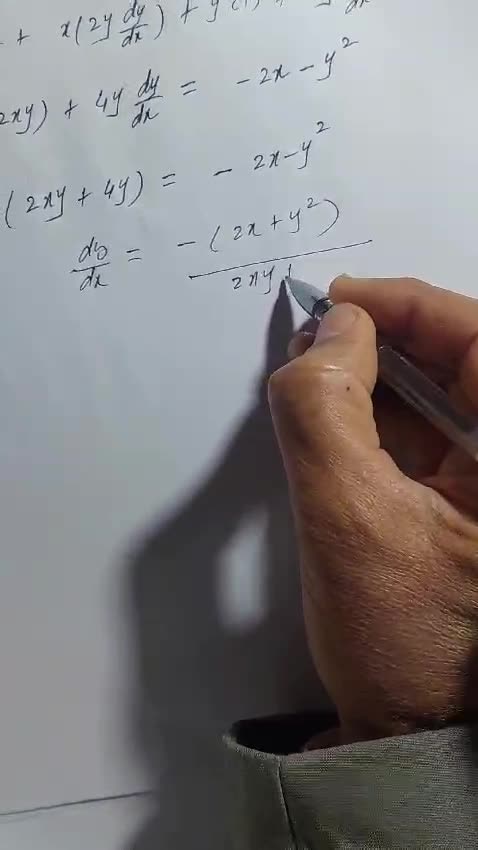 + x(2y dy/dx) + y
2xy) + 4y dy/dx = -2x - y²
(2xy + 4y) = - 2x - y²
dy/dx = -(2x + y²) / 2xy +